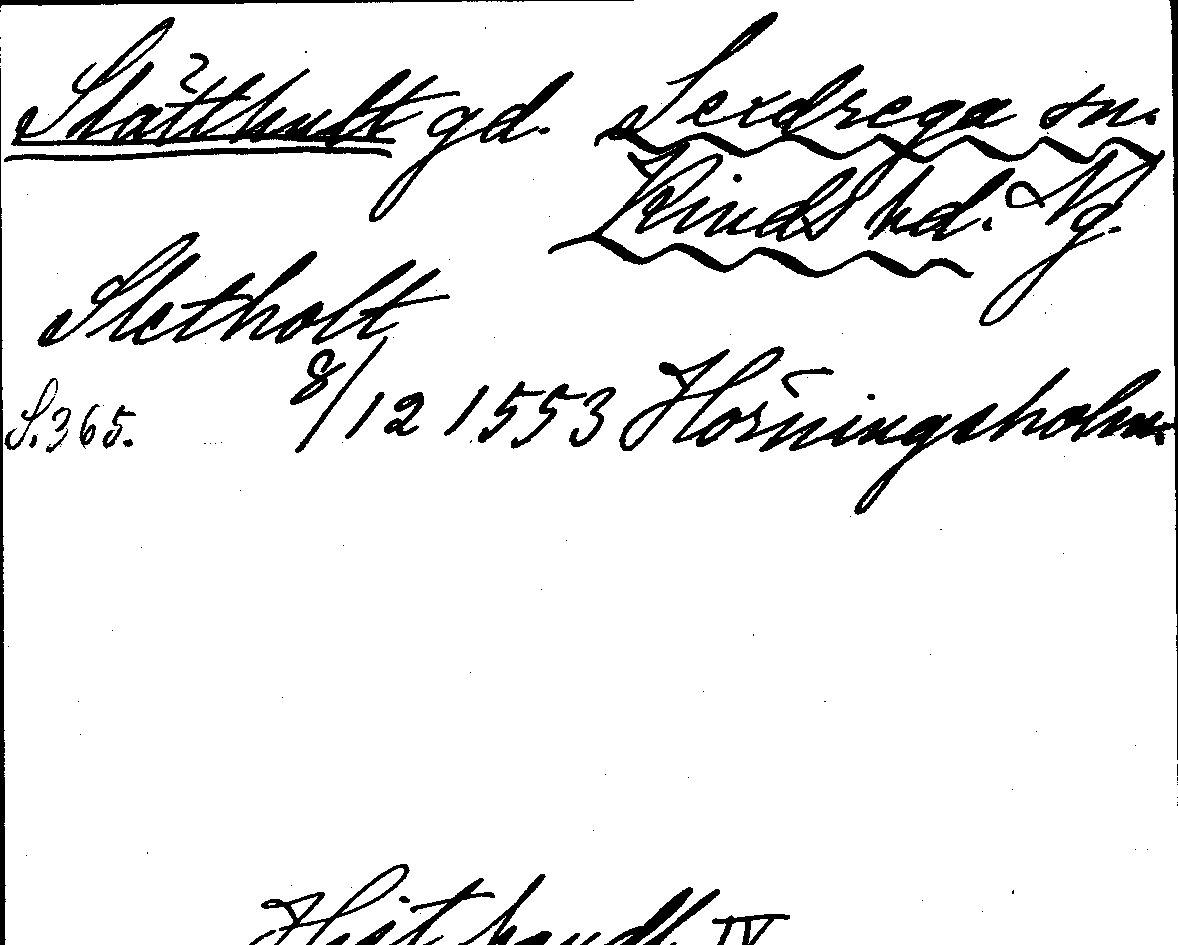 Slätthult gd. Sexdrega sn.
Kinds hd. Vg.
Sletholt
S. 365. 8/12 1553 Hörningsholm.
Hist. handl. IV